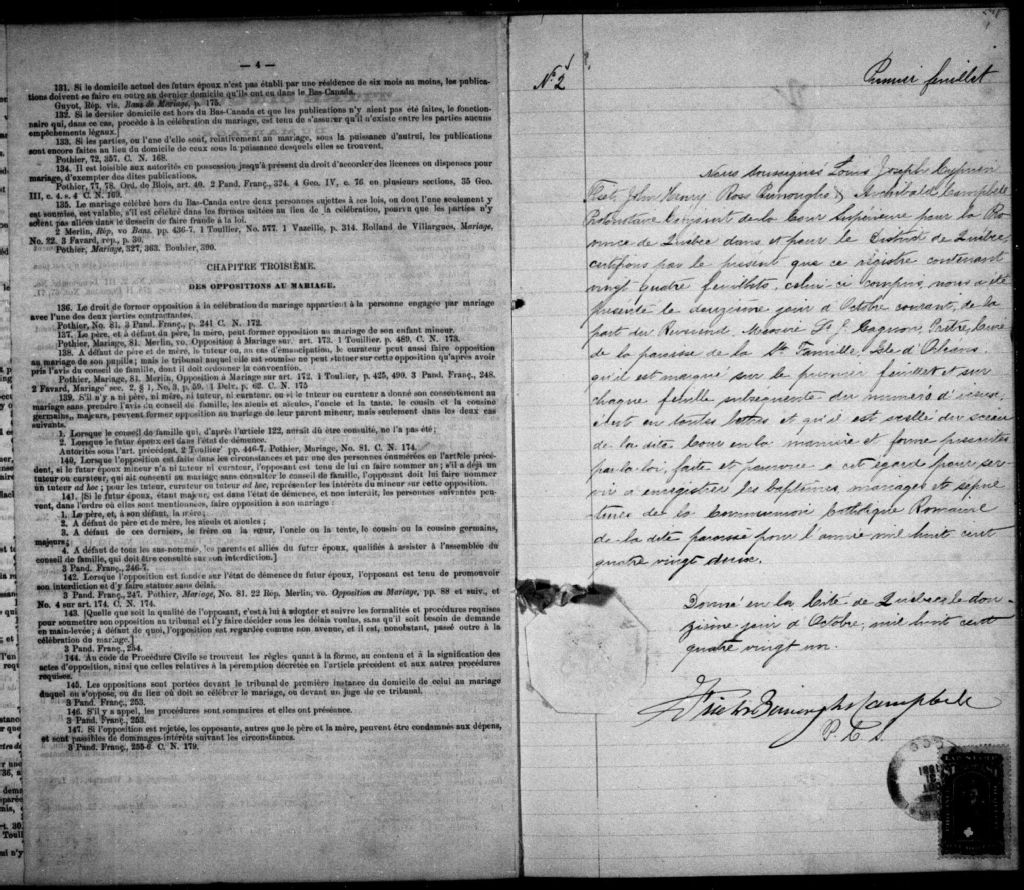 — 4 —
131. Si le domicile actuel des futurs époux n'est pas établi par une résidence de six mois au moins, les publica-
tions doivent se faire en outre au dernier domicile qu'ils ont eu dans le Bas-Canada.
Guyot, Rép. vis. Bans de Mariage, p. 175.
132. Si le dernier domicile est hors du Bas-Canada et que les publications n'y aient pas été faites, le fonction-
naire qui, dans ce cas, procède à la célébration du mariage, est tenu de s'assurer qu'il n'existe entre les parties aucuns
empêchements légaux.]
133. Si les parties, ou l'une d'elle sont, relativement au mariage, sous la puissance d'autrui, les publications
sont encore faites au lieu du domicile de ceux sous la puissance desquels elles se trouvent.
Pothier, 72, 357. C. N. 168.
134. Il est loisible aux autorités en possession jusqu'à présent du droit d'accorder des licences ou dispenses pour
mariage, d'exempter des dites publications.
Pothier, 77, 78. Ord. de Blois, art. 40. 2 Pand. Franç., 324. 4 Geo. IV, c. 76. en plusieurs sections, 35 Geo.
III, c. 4. s. 4 C. N. 169.
135. Le mariage célébré hors du Bas-Canda entre deux personnes sujettes à ses lois, ou dont l'une seulement y
est soumise, est valable, s'il est célébré dans les formes usitées au lieu de la célébration, pourvu que les parties n'y
soient pas allées dans le dessein de faire fraude à la loi.
2 Merlin, Rép, vo Bans. pp. 436-7. 1 Toullier, No. 577. 1 Vazeille, p. 314. Rolland de Villargues, Mariage,
No. 22. 3 Favard, rep., p. 30.
Pothier, Mariage, 327, 363. Bouhier, 390.
CHAPITRE TROISIÈME.
DES OPPOSITIONS AU MARIAGE.
136. Le droit de former opposition à la célébration du mariage appartient à la personne engagée par mariage
avec l'une des deux parties contractantes.
Pothier, No. 81. 3 Pand. Franç., p. 241 C. N. 172.
137. Le père, et à défaut du père, la mère, peut former opposition au mariage de son enfant mineur.
Pothier, Mariage, 81. Merlin, vo. Opposition à Mariage sur. art. 173. 1 Touillier. p. 489. C. N. 173.
138. A défaut de père et de mère, le tuteur ou, au cas d'émancipation, le curateur peut aussi faire opposition
au mariage de son pupille; mais le tribunal auquel elle est soumise ne peut statuer sur cette opposition qu'après avoir
pris l'avis du conseil de famille, dont il doit ordonner la convocation.
Pothier, Mariage, 81. Merlin, Opposition à Mariage sur art. 172. 1 Toullier, p. 425, 490. 3 Pand. Franç., 248.
2 Favard, Mariage sec. 2, § 1, No. 3, p. 59. 1 Delr., p. 62. C. N. 175
139. S'il n'y a ni père, ni mère, ni tuteur, ni curateur, ou si le tuteur ou curateur a donné son consentement au
mariage sans prendre l'avis du conseil de famille, les aïeuls et aïeules, l'oncle et la tante, le cousin et la cousine
germains, majeurs, peuvent former opposition au mariage de leur parent mineur, mais seulement dans les deux cas
suivants.
1. Lorsque le conseil de famille qui, d'après l'article 122, aurait dû être consulté, ne l'a pas été;
2. Lorsque le futur époux est dans l'état de démence.
Autorités sous l'art. précédent, 2 Toullier' pp. 446-7. Pothier, Mariage, No. 81. C. N. 174.
140. Lorsque l'opposition est faite dans les circonstances et par une des personnes énumérées en l'article précé-
dent, si le futur époux mineur n'a ni tuteur ni curateur, l'opposant est tenu de lui en faire nommer un; s'il a déjà un
tuteur ou curateur, qui ait consenti au mariage sans consulter le conseil de famille, l'opposant doit lui faire nommer
un tuteur ad hoc; pour les tuteur, curateur ou tuteur ad hoc, représenter les intérêts du mineur sur cette opposition.
141. [Si le futur époux, étant majeur, est dans l'état de démence, et non interdit, les personnes suivantes peu-
vent, dans l'ordre où elles sont mentionnées, faire opposition à son mariage:
1. Le père, et, à son défaut, la mère;
2. A défaut de père et de mère, les aïeuls et aïeules;
3. A défaut de ces derniers, le frère ou la sœur, l'oncle ou la tente, le cousin ou la cousine germains,
majeurs;
4. A défaut de tous les sus-nommés, les parents et alliés du futur époux, qualifiés à assister à l'assemblée du
conseil de famille, qui doit être consulté sur son interdiction.]
3 Pand. Franç., 246-7.
142. Lorsque l'opposition est fondée sur l'état de démence du futur époux, l'opposant est tenu de promouvoir
son interdiction et d'y faire statuer sans délai.
3 Pand. Franç., 247. Pothier, Mariage, No. 81. 22 Rép. Merlin, vo. Opposition au Mariage, pp. 88 et suiv., et
No. 4 sur art. 174. C. N. 174.
143. [Quelle que soit la qualité de l'opposant, c'est à lui à adopter et suivre les formalités et procédures requises
pour soumettre son opposition au tribunal et l'y faire décider sous les délais voulus, sans qu'il soit besoin de demande
en main-levée; à défaut de quoi, l'opposition est regardée comme non avenue, et il est, nonobstant, passé outre à la
célébration du mariage.]
3 Pand. Franç., 254.
144. Au code de Procédure Civile se trouvent les règles quant à la forme, au contenu et à la signification des
actes d'opposition, ainsi que celles relatives à la péremption décrétée en l'article précédent et aux autres procédures
requises.
145. Les oppositions sont portées devant le tribunal de première instance du domicile de celui au mariage
duquel on s'oppose, ou du lieu où doit se célébrer le mariage, ou devant un juge de ce tribunal.
3 Pand. Franç., 253.
146. S'il y a appel, les procédures sont sommaires et elles ont préséance.
3 Pand. Franç., 253.
147. Si l'opposition est rejetée, les opposants, autres que le père et la mère, peuvent être condamnés aux dépens,
et sont passibles de dommages-intérêts suivant les circonstances.
3 Pand. Franç., 255-6. C. N. 179.
No. 2
Premier feuillet
Nous soussignés Louis Joseph Cyprien
Fiset, John Henry Ross Burroughs & Archibald Campbell
Protonotaire Conjoint de la Cour Supérieure pour la Pro
vince de Québec dans et pour le District de Québec,
certifions par le présent que ce régistre contenant
vingt Quatre feuillets, celui-ci compris, nous a été
présenté le douzième jour d'Octobre courant, de la
part du Révérend Messire Ft. J. Gagnon, Prêtre, Curé
de la paroisse de la Ste Famille, Isle d'Orléans.
qu'il est marqué sur le premier feuillet et sur
chaque feuille subséquente du numéro d'iceux,
écrit en toutes lettres et qu'il est scellé du sceau
de la dite Cour en la manière et forme présentes
par la loi, faite et pourvue à cet égard pour ser-
vir à enregistrer les baptêmes, mariages et sépul
tures de la Communion Catholique Romaine
de la dite paroisse pour l'année mil huit cent
quatre vingt deux.
Donné en la Cité de Québec, le dou-
zième jour d'Octobre, mil huit cent
quatre vingt un.
Fiset Burroughs Campbell
P. C. S.
1881